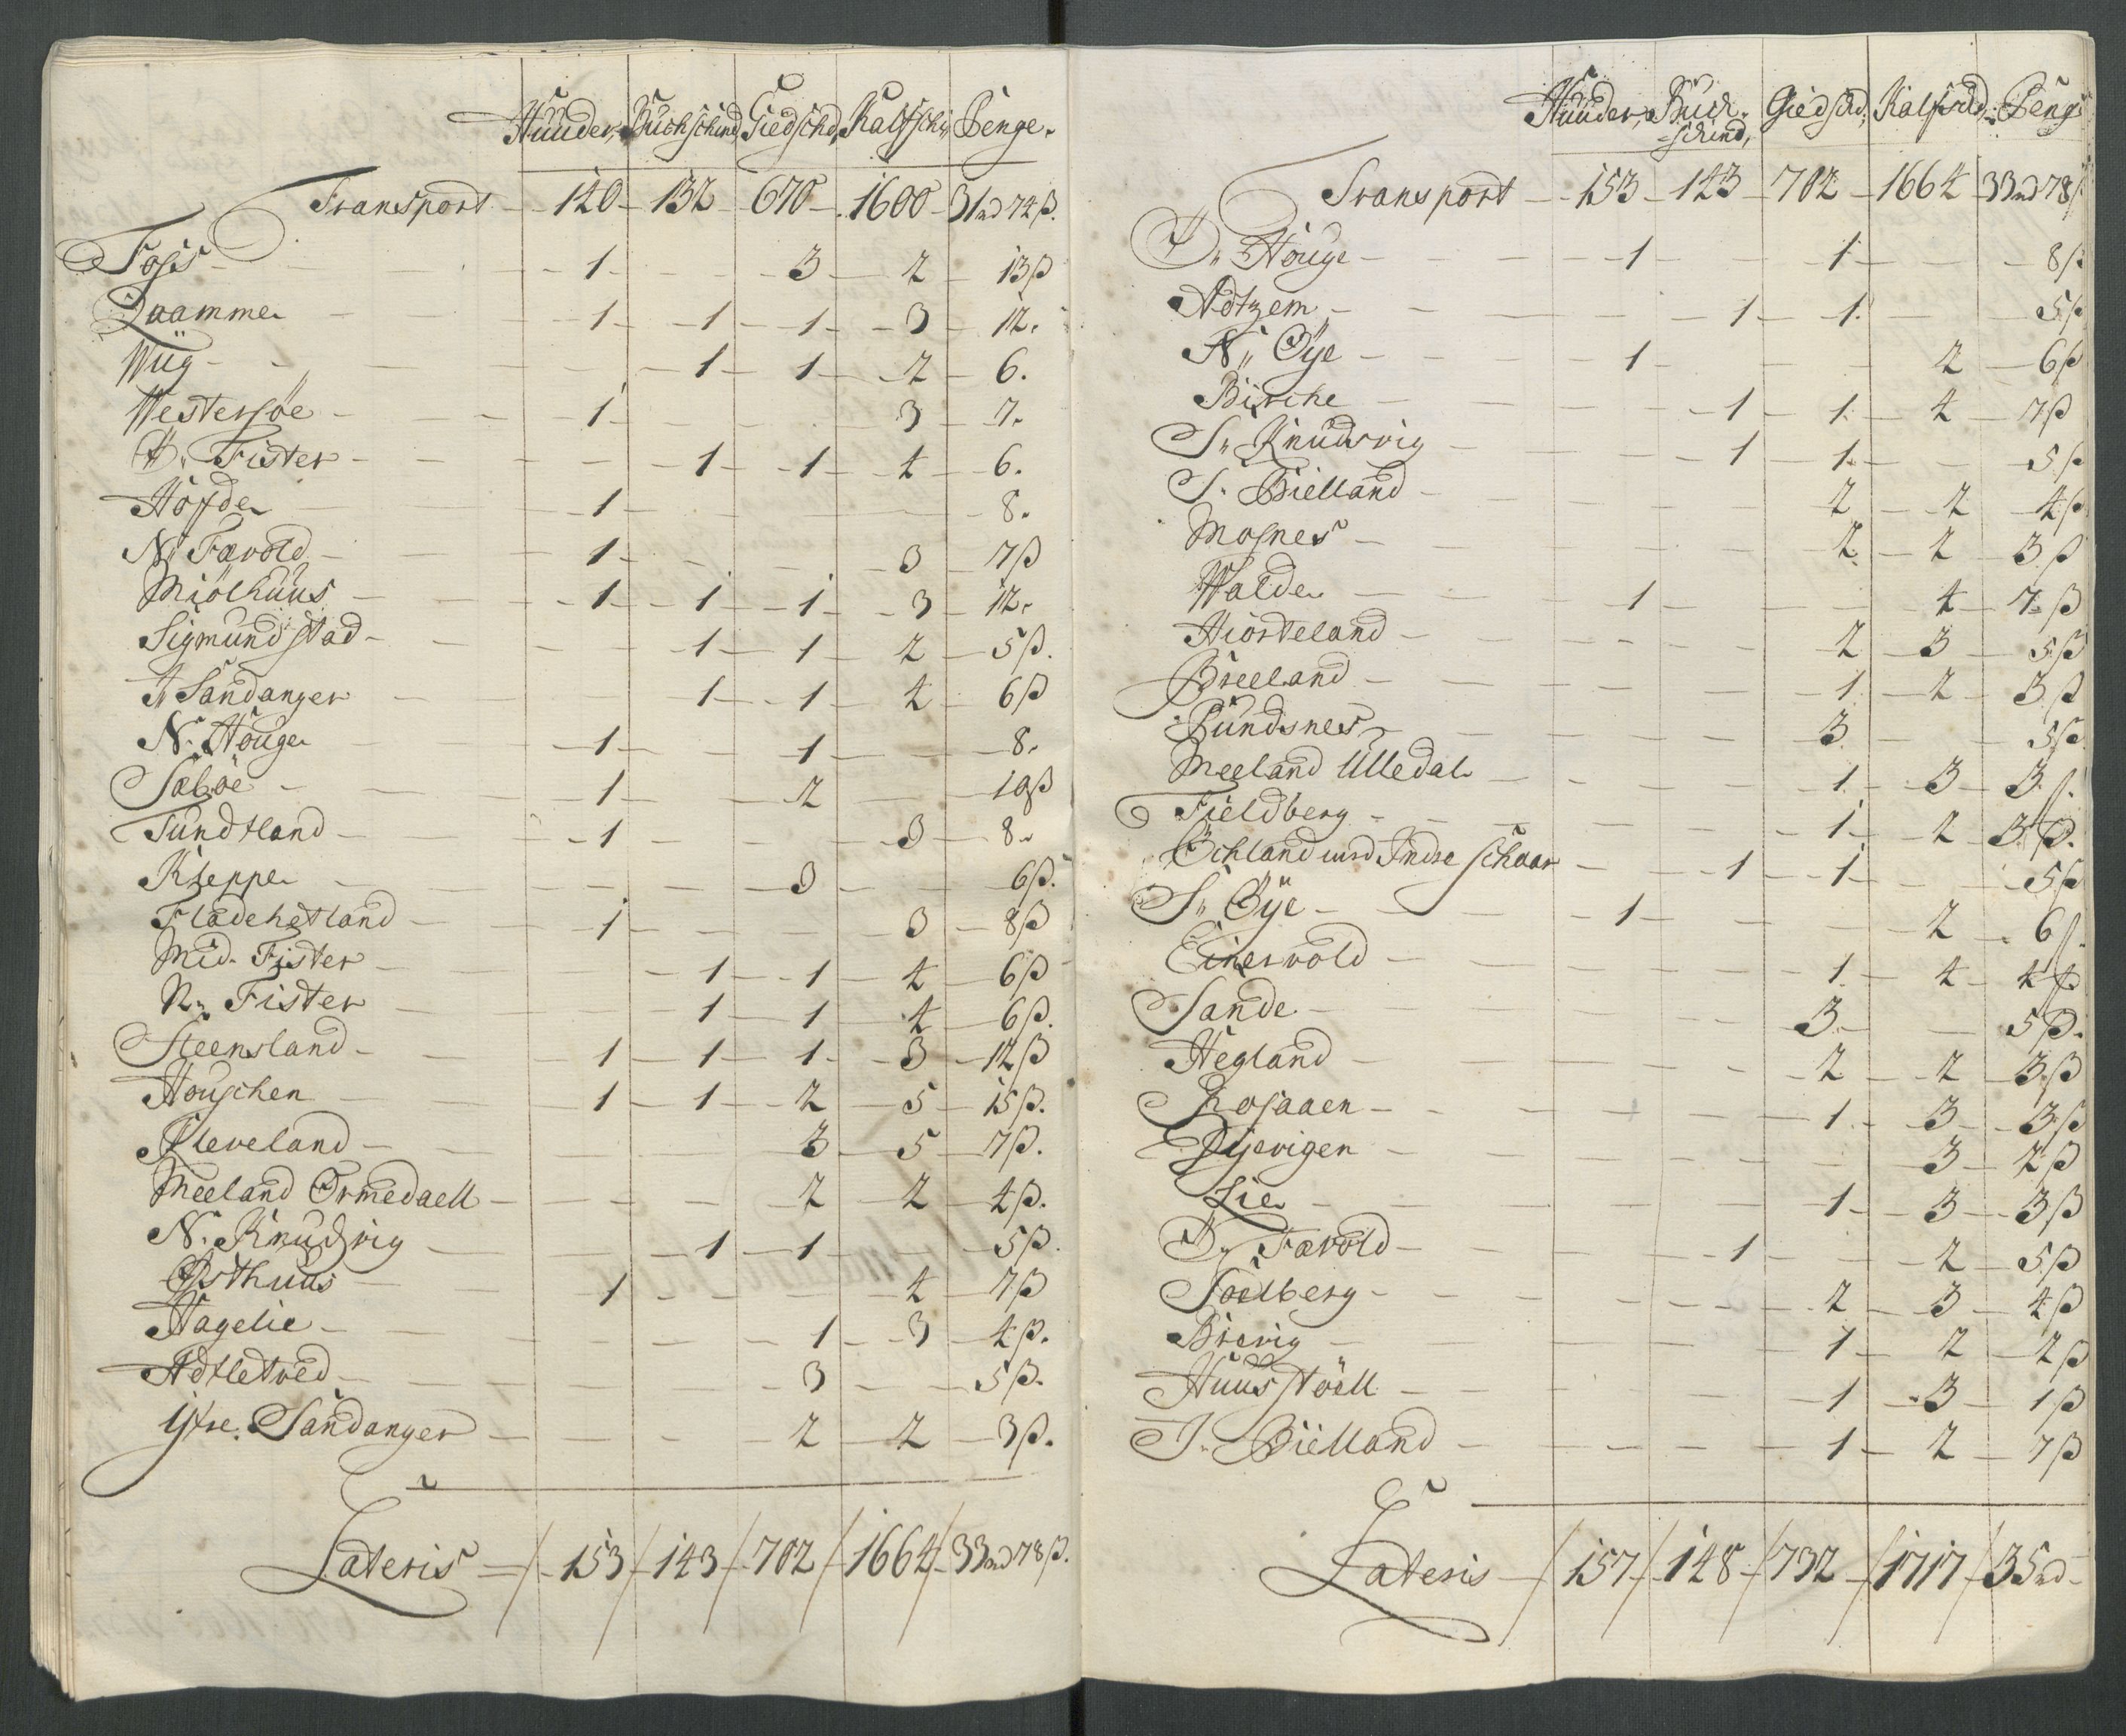 Huuder, Buckschind, Giedschd, Kalfschd, Penge.
Transport 140 132 670 1600 31rd 74ß.
Fosss 1 3 2 13ß
Daamme 1 1 1 3 12.
Wiig 1 1 2 6.
Westersöe 1 3 7.
Ø. Fister 1 1 4 6.
Höfde 1 8.
N. Færvold 1 3 7ß
Miölhuus 1 1 1 3 12.
Sigmundstad 1 1 2 5ß.
I. Sandanger 1 1 4 6ß
N. Houge 1 1 8.
Sæböe 1 2 10ß
Tundtland 1 3 8.
Kleppe 3 6ß.
Fladehetland 1 3 8ß
Mid. Fister 1 1 4 6ß
N. Fister 1 1 4 6ß.
Steensland 1 1 1 3 12ß
Houschen 1 1 2 5 15ß.
Kleveland 3 5 7ß.
Meeland Ormedaell 2 2 4ß.
N. Knudsvig 1 1 5ß.
Østhuus 1 4 7ß
Hagelie 1 3 4ß.
Adtletved 3 5ß.
Ytre. Sandanger 2 2 3ß.
Lateris 153 143 702 1664 33rd 78ß.
Huuder, Buck-schind, Giedschd, Kalfschd, Peng
Transport 153 143 702 1664 33rd 78ß
Ø. Houge 1 1 8ß
Adtzem 1 1 5ß
N. Øye 1 2 6ß
Birche 1 1 4 7ß
S. Knudsvig 1 1 5ß
S. Bielland 2 2 4ß
Mosnes 2 2 3ß
Walde 1 4 7ß
Hiorteland 2 3 5ß
Breeland 1 2 3ß
Pundsnes 3 5ß
Meeland Ulledal 1 3 3ß.
Fieldberg 1 2 3ß.
Öchland med Indre schaar 1 1 5ß
S. Øye 1 2 6ß
Einervold 1 4 4ß
Sande 3 5ß.
Hegland 2 2 3ß
Rosaaen 1 3 3ß
Dyevigen 3 2ß
Lie 1 3 3ß
Ø. Færvold 1 2 5ß
Soelberg 2 3 4ß
Brevig 1 2 2ß
Huustöell 1 3 1ß
I. Bielland 1 2 7ß
Lateris 157 148 732 1717 35rd